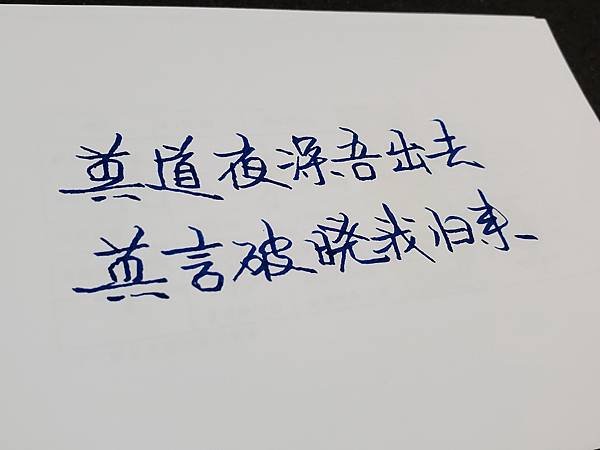 莫道夜深吾出去
莫言破晓我归来